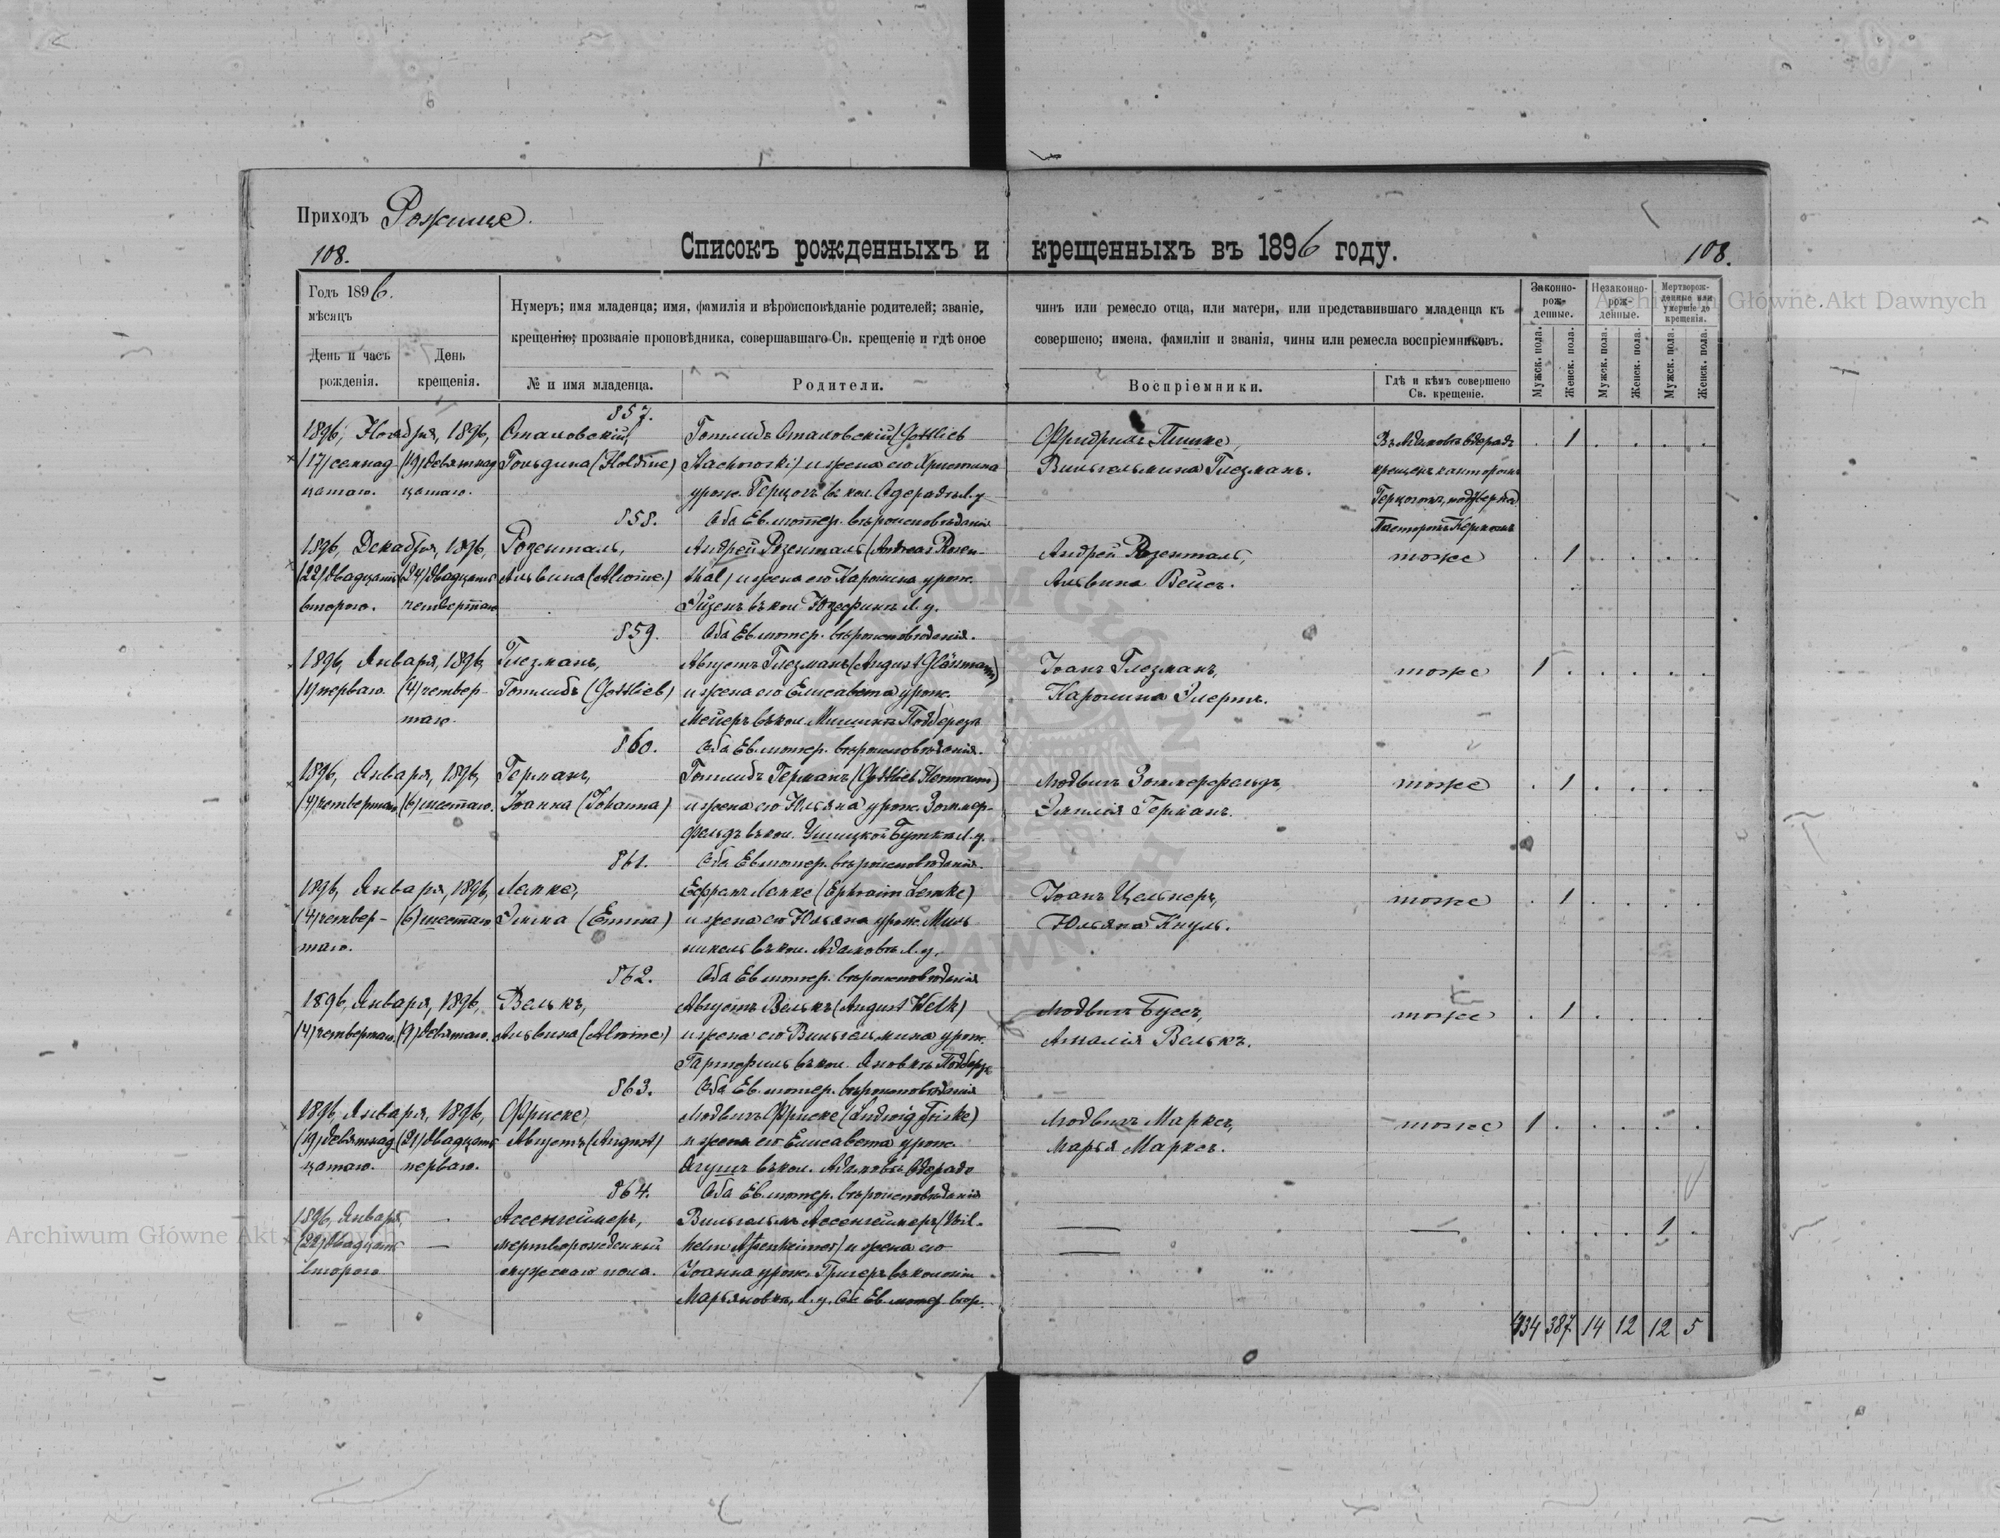 Приходъ Рожище.
108.
Списокъ рожденныхъ и крещенныхъ въ 1896 году.
108.
Годъ 1896.
мѣсяцъ
День и часъ рожденія.
День крещенія.
Нумеръ; имя младенца; имя, фамилія и вѣроисповѣданіе родителей; званіе,
крещенію; прозваніе проповѣдника, совершавшаго Св. крещеніе и гдѣ оное
чинъ или ремесло отца, или матери, или представившаго младенца къ
совершено; имена, фамиліи и званія, чины или ремесла воспріемниковъ.
№ и имя младенца.
Родители.
Воспріемники.
Гдѣ и кѣмъ совершено
Св. крещеніе.
Законно-
рож-
денные.
Незаконно-
рож-
денные.
Мертворож-
денные или
умершіе до
крещенія.
Мужск. пола.
Женск. пола.
Мужск. пола.
Женск. пола.
Мужск. пола.
Женск. пола.
857.
1896, Ноября, 1896,
Стаховскій,
Готлибъ Стаховскій (Gottlieb
Фридрихъ
1
(17) семнад
(19) девятнад
Гольдина (Holdine)
Stachowski) и жена его Христина
Вильгельмина Глезманъ.
крещенъ канторомъ
цатаго.
цатаго.
урож. Герцогъ въ кол.
858.
Оба Ев. лютер. вѣроисповѣданія
1896, Декабря, 1896,
Розенталь,
Андрей Розенталь (Andreas Rosen-
Андрей Розенталь,
тоже
1
(22) двадцать
(24) двадцать
Альвина (Alwine)
thal) и жена его Каролина урож.
Альвина Вейсъ.
второго.
четвертаго
въ кол. Юзефинъ Л. у.
859.
Оба Ев. лютер. вѣроисповѣданія.
1896, Января, 1896,
Глезманъ,
Августъ Глезманъ (August Glässmann)
Іоанъ Глезманъ,
тоже
1
(1) перваго
(4) четвер-
Готлибъ (Gottlieb)
и жена его Елисавета урож.
Каролина Элертъ.
таго.
Мейеръ въ кол.
860.
Оба Ев. лютер. вѣроисповѣданія.
1896, Января, 1896,
Германъ,
Готлибъ Германъ (Gottlieb Hermann)
Людвигъ Зоммерфельдъ,
тоже
1
(4) четвертаго
(6) шестаго.
Іоанна (Johanna)
и жена его Юльяна урож. Зоммер-
Эмилія Германъ.
фельдъ въ кол.
861.
Оба Ев. лютер. вѣроисповѣданія.
1896, Января, 1896,
Лемке,
Ефраимъ Лемке (Ephraim Lemke)
Іоанъ Цельмеръ,
тоже
1
(4) четвер-
(6) шестаго
Эмма (Emma)
и жена его Юльяна урож.
Юльяна Кнуль.
таго.
въ кол. Адамовъ Л. у.
862.
Оба Ев. лютер. вѣроисповѣданія
1896, Января, 1896,
Велькъ,
Августъ Велькъ (August Welk)
Людвигъ Буссъ,
тоже
1
(4) четвертаго.
(9) девятаго.
Альвина (Alwine)
и жена его Вильгельмина урож.
Амалія Велькъ.
въ кол. Яновкѣ
863.
Оба Ев. лютер. вѣроисповѣданія
1896, Января, 1896,
Фриске,
Людвигъ Фриске (Ludwig Friske)
Людвигъ Марксъ,
тоже
1
(19) девятнад
(21) двадцать
Августъ (August)
и жена его Елисавета урож.
Марья Марксъ.
цатаго.
перваго.
въ кол.
864.
Оба Ев. лютер. вѣроисповѣданія
1896, Января,
Ассенгеймеръ,
Вильгельмъ Ассенгеймеръ (Wil-
1
(22) двадцать
мертворожденный
helm Assenheimer) и жена его
второго
мужскаго пола.
Іоанна урож. въ колоніи
Марьяновкѣ, Л. у. Оба Ев. лютер. вѣр.
434 387 14 12 12 5
Archiwum Główne Akt Dawnych
Archiwum Główne Akt Dawnych
ARCHIWUM GŁÓWNE AKT DAWNYCH